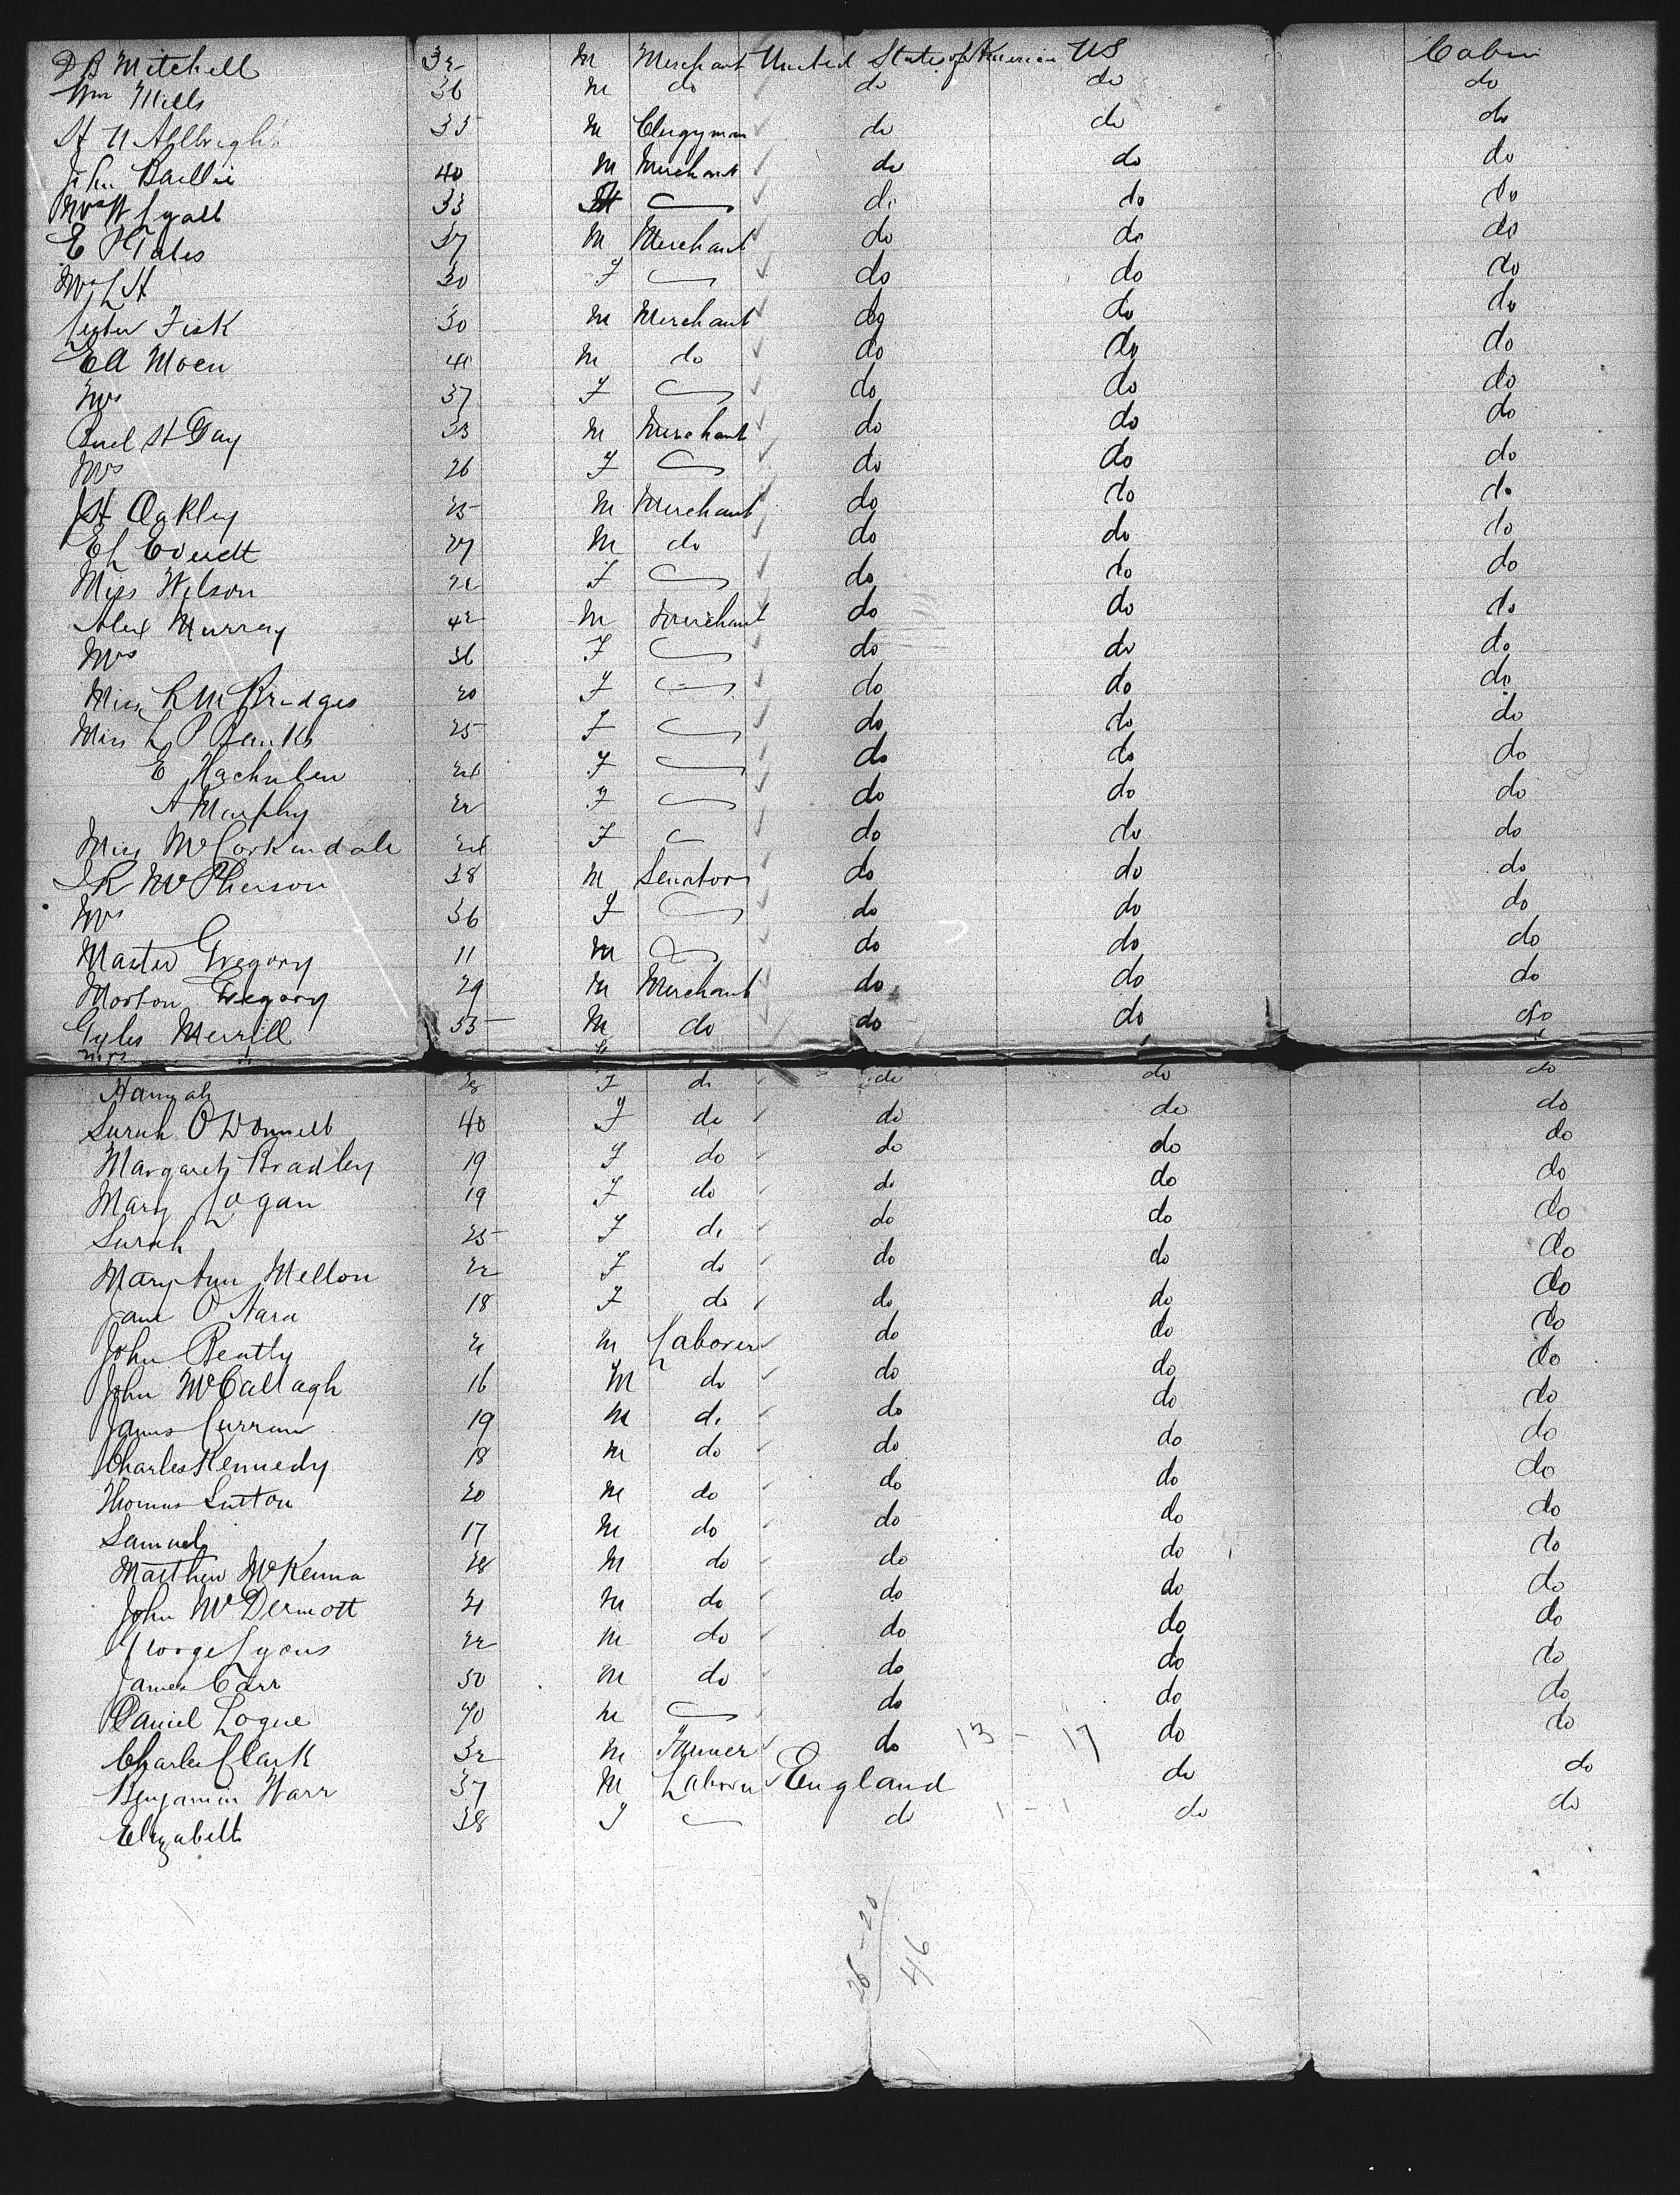 D B Mitchell 32 M Merchant United States of America US Cabin
Wm Mills 36 M do do do do
35 M Clergyman do do do
John Baillie 40 M Merchant do do do
Mrs W Lyall 33 do do do
E P Tales 37 M Merchant do do do
Mrs L H 30 F do do do
Lester Fisk 30 M Merchant do do do
Ed Moen 41 M do do do do
Mrs 37 F do do do
Buel H Day 33 M Merchant do do do
Mrs 26 F do do do
J H Oakley 25 M Merchant do do do
E L Everett 27 M do do do do
Miss Wilson 22 F do do do
Alex Murray 42 M Merchant do do do
Mrs 36 F do do do
Miss L M Bridges 20 F do do do
Miss L P Banks 25 F do do do
E F do do do
A Murphy 22 F do do do
Miss McCorkindale F do do do
J R McPherson 38 M Senator do do do
Mrs 36 F do do do
Master Gregory 11 M do do do
Morton Gregory 29 M Merchant do do do
Gyles Merrill 55 M do do do do
Mrs
Hannah 28 F do do do do
Sarah O'Donnell 40 F do do do do
Margaret Bradley 19 F do do do do
Mary Logan 19 F do do do do
Sarah 25 F do do do do
Mary Ann Mellon 22 F do do do do
Jane O'Hara 18 F do do do do
John Beatty 21 M Laborer do do do
John McCallagh 16 M do do do do
James Curran 19 M do do do do
Charles Kennedy 18 M do do do do
Thomas Sutton 20 M do do do do
Samuel 17 M do do do do
Matthew McKenna 28 M do do do do
John McDermott 21 M do do do do
George Lyons 22 M do do do do
James Carr 50 M do do do do
Daniel Logue 70 M do do do
Charles Clark 32 M Farmer do 13 - 17 do do
Benjamin Warr 37 M Laborer England do do
Elizabeth 38 F do 1 - 1 do do
26 - 20
46